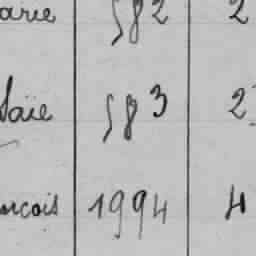 arie 582 2
Saïe 583 2
nçois 1994 4